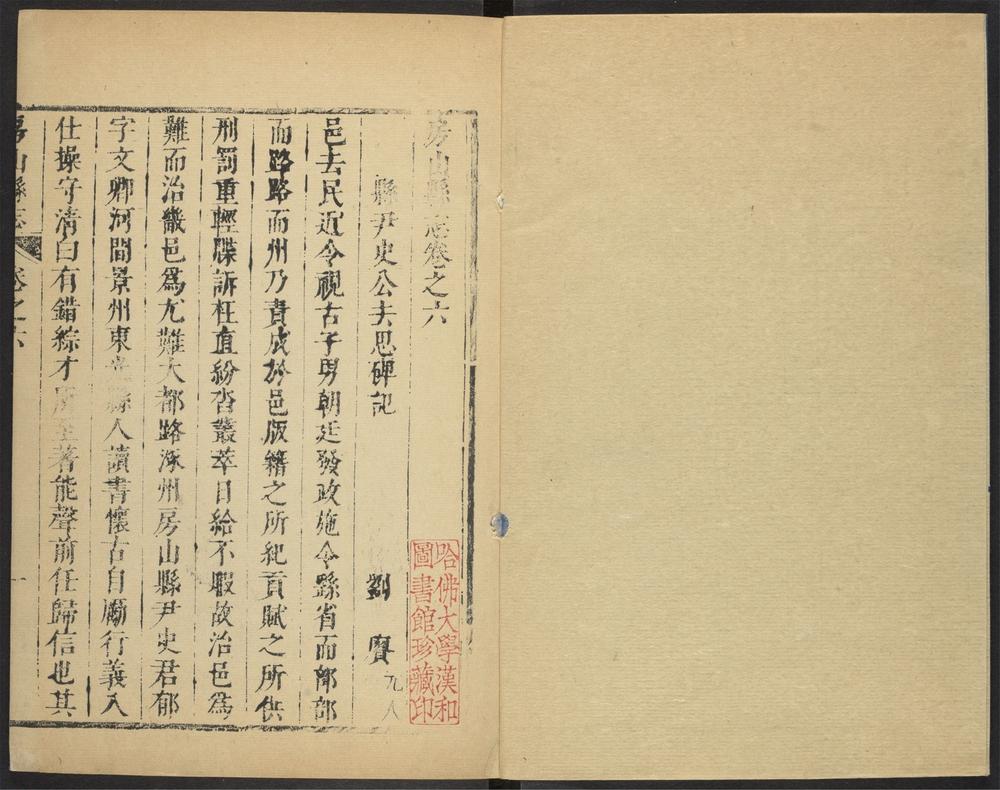 房山縣志卷之六
縣尹史公去思碑記
劉賡 元人
邑去民近令視古子男朝廷發政施令繇省而部部
而路路而州乃責成於邑版籍之所紀貢賦之所供
刑罰重輕牒訴枉直紛沓叢萃日給不暇故治邑爲
難而治畿邑爲尤難大都路涿州房山縣尹史君郁
字文卿河間景州東光縣人讀書懷古自勵行義入
仕操守清白有錯綜才所至著能聲前任歸信也其
房山縣志 卷之六 一
哈佛大學漢和
圖書館珍藏印